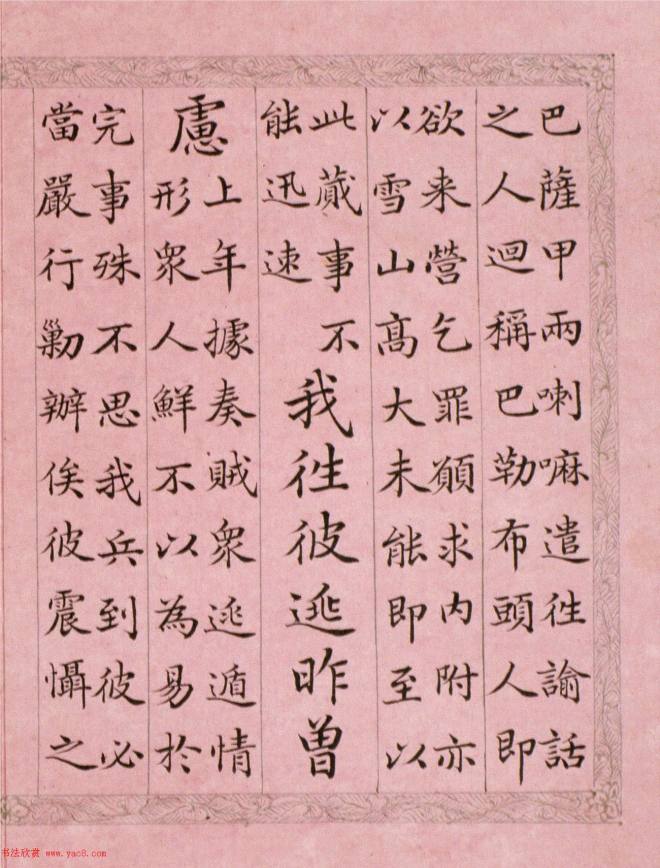 巴薩甲兩喇嘛遣徃諭話
之人迴稱巴勒布頭人即
欲来營乞罪願求内附亦
以雪山髙大未能即至以
此蕆事不
能迅速
我徃彼逃昨曾
慮
上年據奏賊衆逃遁情
形衆人鮮不以為易於
完事殊不思我兵到彼必
當嚴行勦辦俟彼震懾之
书法欣赏 www.yac8.com